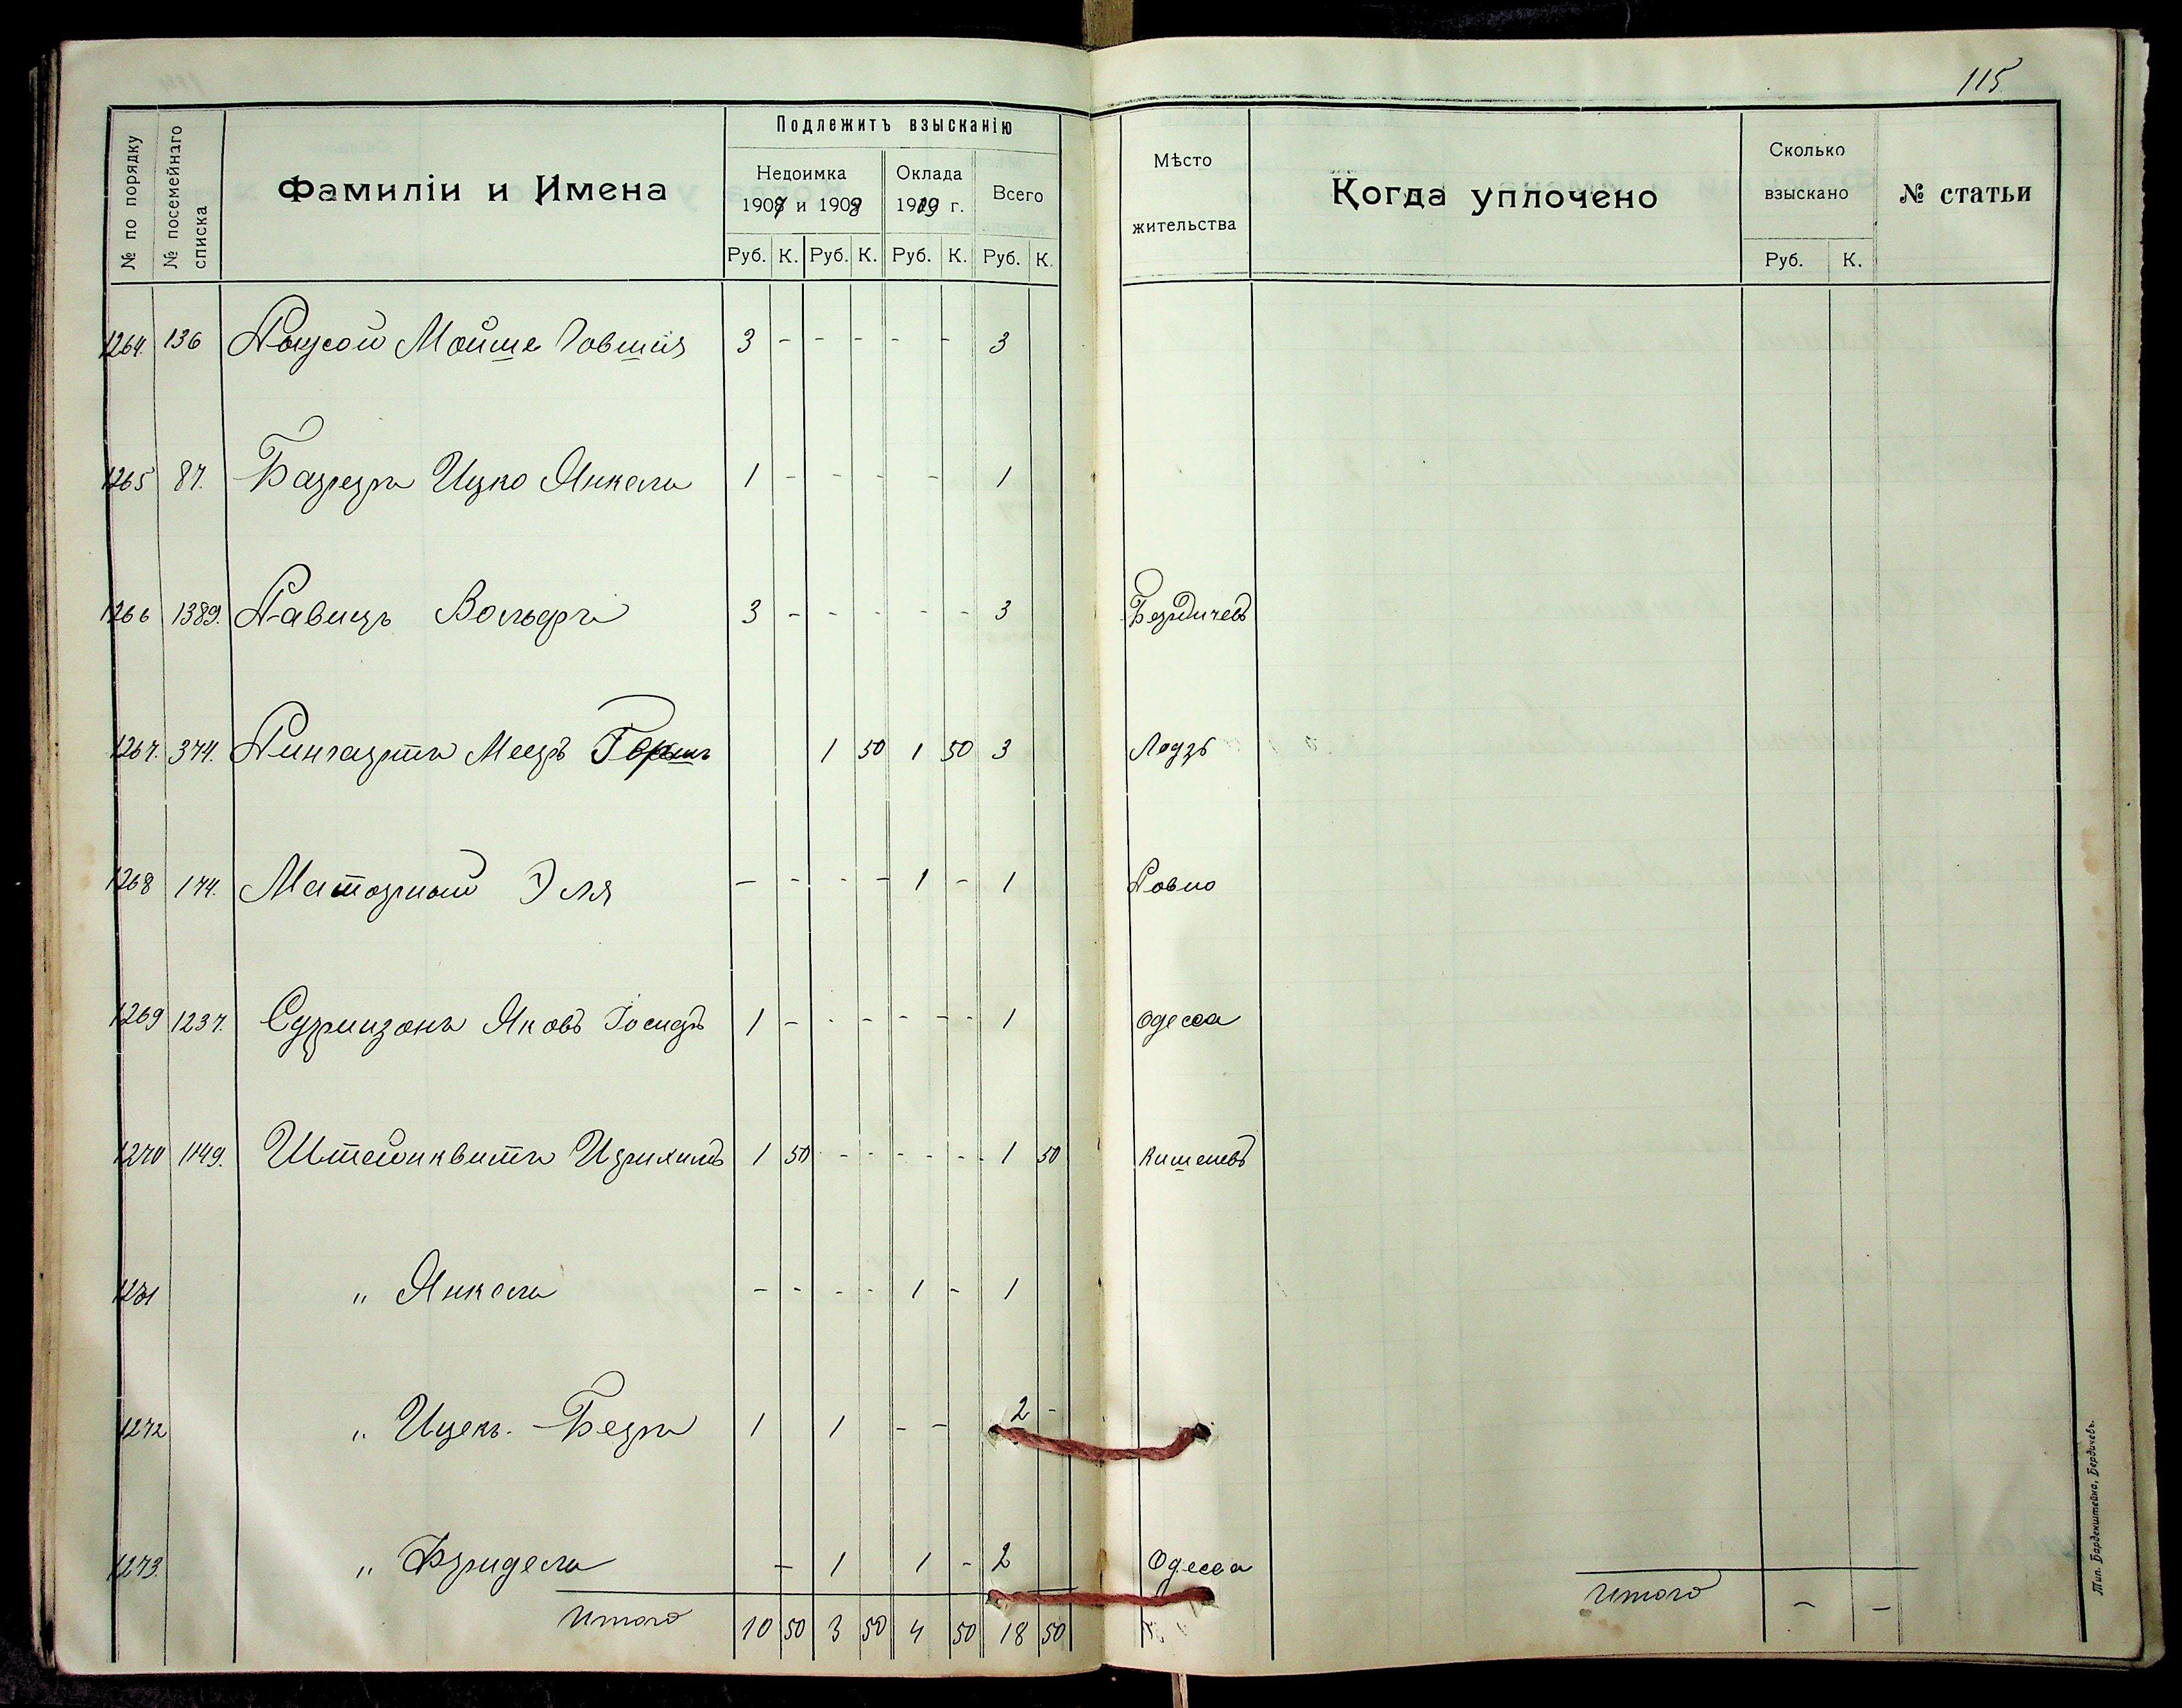 115
№ по порядку
№ посемейнаго списка
Фамиліи и Имена
Подлежитъ взысканію
Недоимка 1907 и 1908
Оклада 1909 г.
Всего
Руб. К. Руб. К. Руб. К. Руб. К.
Мѣсто жительства
Когда уплочено
Сколько взыскано
Руб. К.
№ статьи
1264. 136 Мойше Іовшія 3 - - - - - 3
1265 87. Ицко Янкель 1 - - - - 1
1266 1389. Равицъ Вольфъ 3 - - - - - 3 Бердичевъ
1267. 374. Рингартъ Мееръ Гершъ 1 50 1 50 3 Лодзь
1268 174. Маторный Эля - - - - 1 - 1 Ровно
1269 1237. Яковъ Іосифъ 1 - - - - - - 1 Одесса
1270 1149. Штейнквитъ Ирихимъ 1 50 - - - - - 1 50 Кишеневъ
1271 " Янкель - - - - 1 - 1
1272 " Ицекъ-Беръ 1 1 - - 2 -
1273. " Фридель - 1 1 - 2 Одесса
Итого 10 50 3 50 4 50 18 50
Итого - -
Тип. Барденштейна, Бердичевъ.